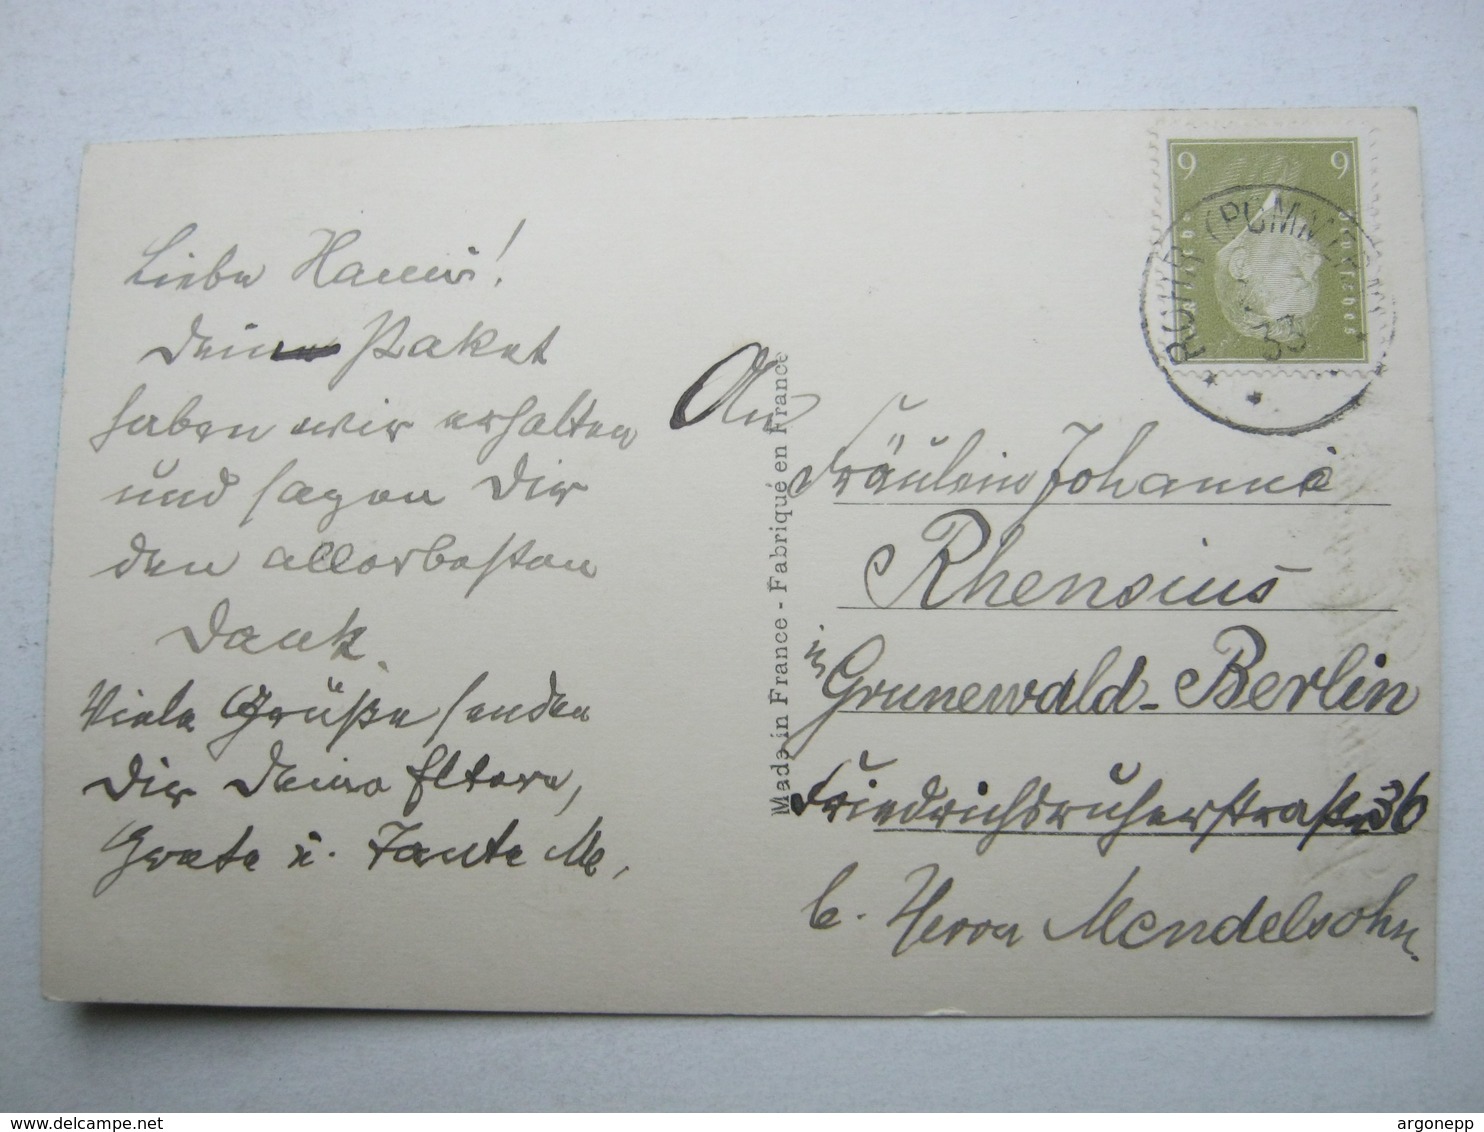 Liebe Hanni!
Dein Paket
haben wir erhalten
und sagen Dir
den allerbesten
Dank.
Viele Grüße senden
Dir Deine Eltern,
Grete u. Tante M.,
Made in France - Fabriqué en France
9 9
Deutsches
ROHR (POMMERN)
33
An
Fräulein Johanna
Rhensius
in Grunewald-Berlin
Friedrichsruherstraße 36
b. Herrn Mendelsohn.
delcampe.net
argonepp